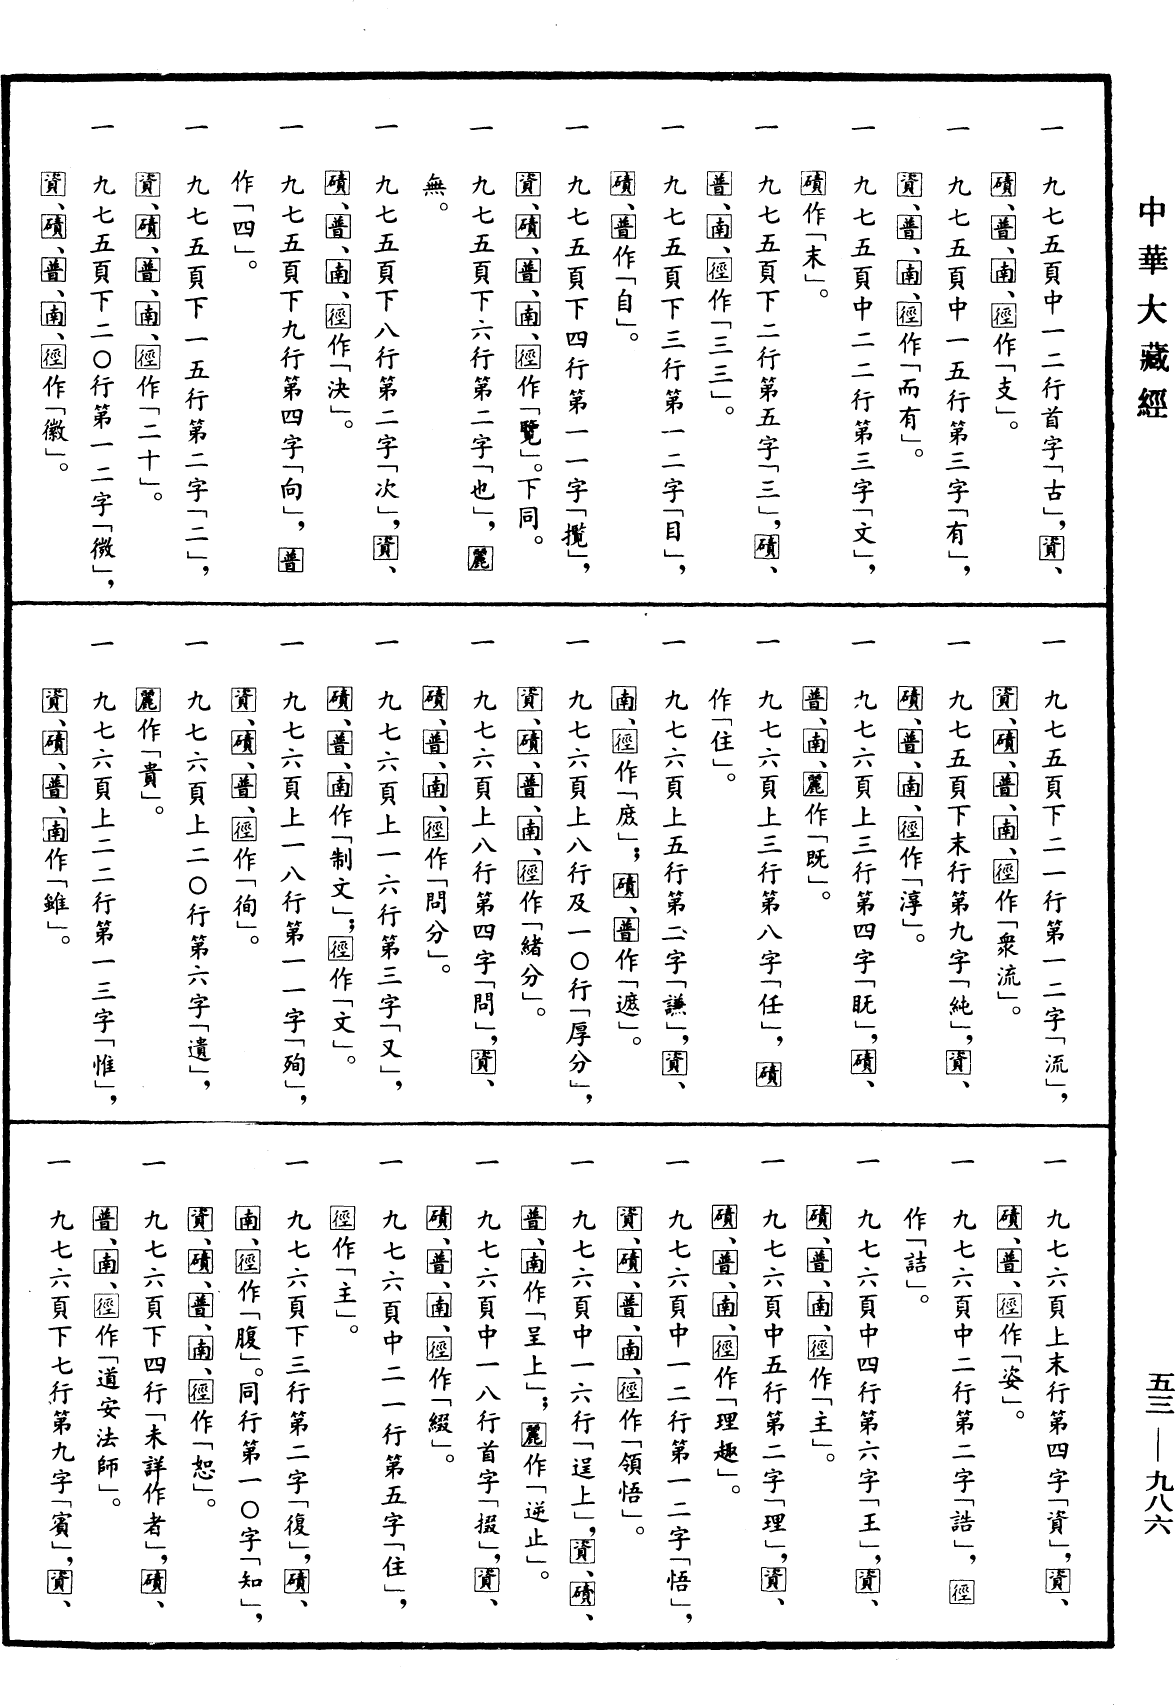 中華大藏經
五三—九八六
一 九七五頁中一二行首字「古」，資、
磧、普、南、徑作「支」。
一 九七五頁中一五行第三字「有」，
資、普、南、徑作「而有」。
一 九七五頁中二二行第三字「文」，
磧作「末」。
一 九七五頁下二行第五字「三」，磧、
普、南、徑作「三三」。
一 九七五頁下三行第一二字「目」，
磧、普作「自」。
一 九七五頁下四行第一一字「攬」，
資、磧、普、南、徑作「覽」。下同。
一 九七五頁下六行第二字「也」，麗
無。
一 九七五頁下八行第二字「次」，資、
磧、普、南、徑作「決」。
一 九七五頁下九行第四字「向」，普
作「四」。
一 九七五頁下一五行第二字「二」，
資、磧、普、南、徑作「二十」。
一 九七五頁下二〇行第一二字「微」，
資、磧、普、南、徑作「徽」。
一 九七五頁下二一行第一二字「流」，
資、磧、普、南、徑作「衆流」。
一 九七五頁下末行第九字「純」，資、
磧、普、南、徑作「淳」。
一 九七六頁上三行第四字「眂」，磧、
普、南、麗作「既」。
一 九七六頁上三行第八字「任」，磧
作「住」。
一 九七六頁上五行第二字「謙」，資、
南、徑作「庻」；磧、普作「遮」。
一 九七六頁上八行及一〇行「厚分」，
資、磧、普、南、徑作「緒分」。
一 九七六頁上八行第四字「問」，資、
磧、普、南、徑作「問分」。
一 九七六頁上一六行第三字「又」，
磧、普、南作「制文」；徑作「文」。
一 九七六頁上一八行第一一字「殉」，
資、磧、普、徑作「徇」。
一 九七六頁上二〇行第六字「遺」，
麗作「貴」。
一 九七六頁上二二行第一三字「惟」，
資、磧、普、南作「雖」。
一 九七六頁上末行第四字「資」，資、
磧、普、徑作「姿」。
一 九七六頁中二行第二字「誥」，徑
作「詰」。
一 九七六頁中四行第六字「王」，資、
磧、普、南、徑作「主」。
一 九七六頁中五行第二字「理」，資、
磧、普、南、徑作「理趣」。
一 九七六頁中一二行第一二字「悟」，
資、磧、普、南、徑作「領悟」。
一 九七六頁中一六行「逞上」，資、磧、
普、南作「呈上」；麗作「逆止」。
一 九七六頁中一八行首字「掇」，資、
磧、普、南、徑作「綴」。
一 九七六頁中二一行第五字「住」，
徑作「主」。
一 九七六頁下三行第二字「復」，磧、
南、徑作「腹」。同行第一〇字「知」，
資、磧、普、南、徑作「恕」。
一 九七六頁下四行「未詳作者」，磧、
普、南、徑作「道安法師」。
一 九七六頁下七行第九字「賓」，資、